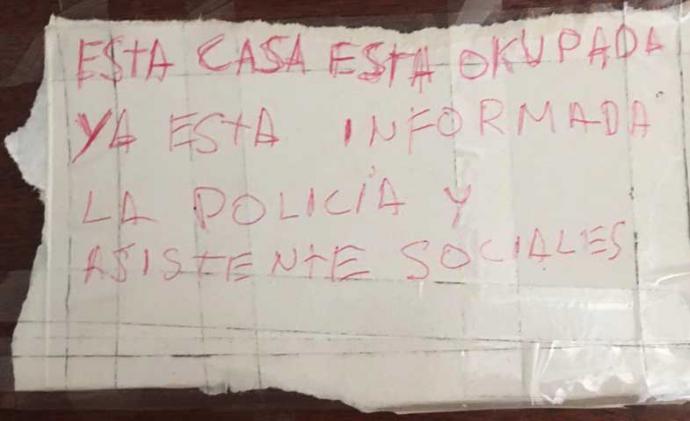 ESTA CASA ESTA OKUPADA
YA ESTA INFORMADA
LA POLICÍA Y
ASISTENTE SOCIALES